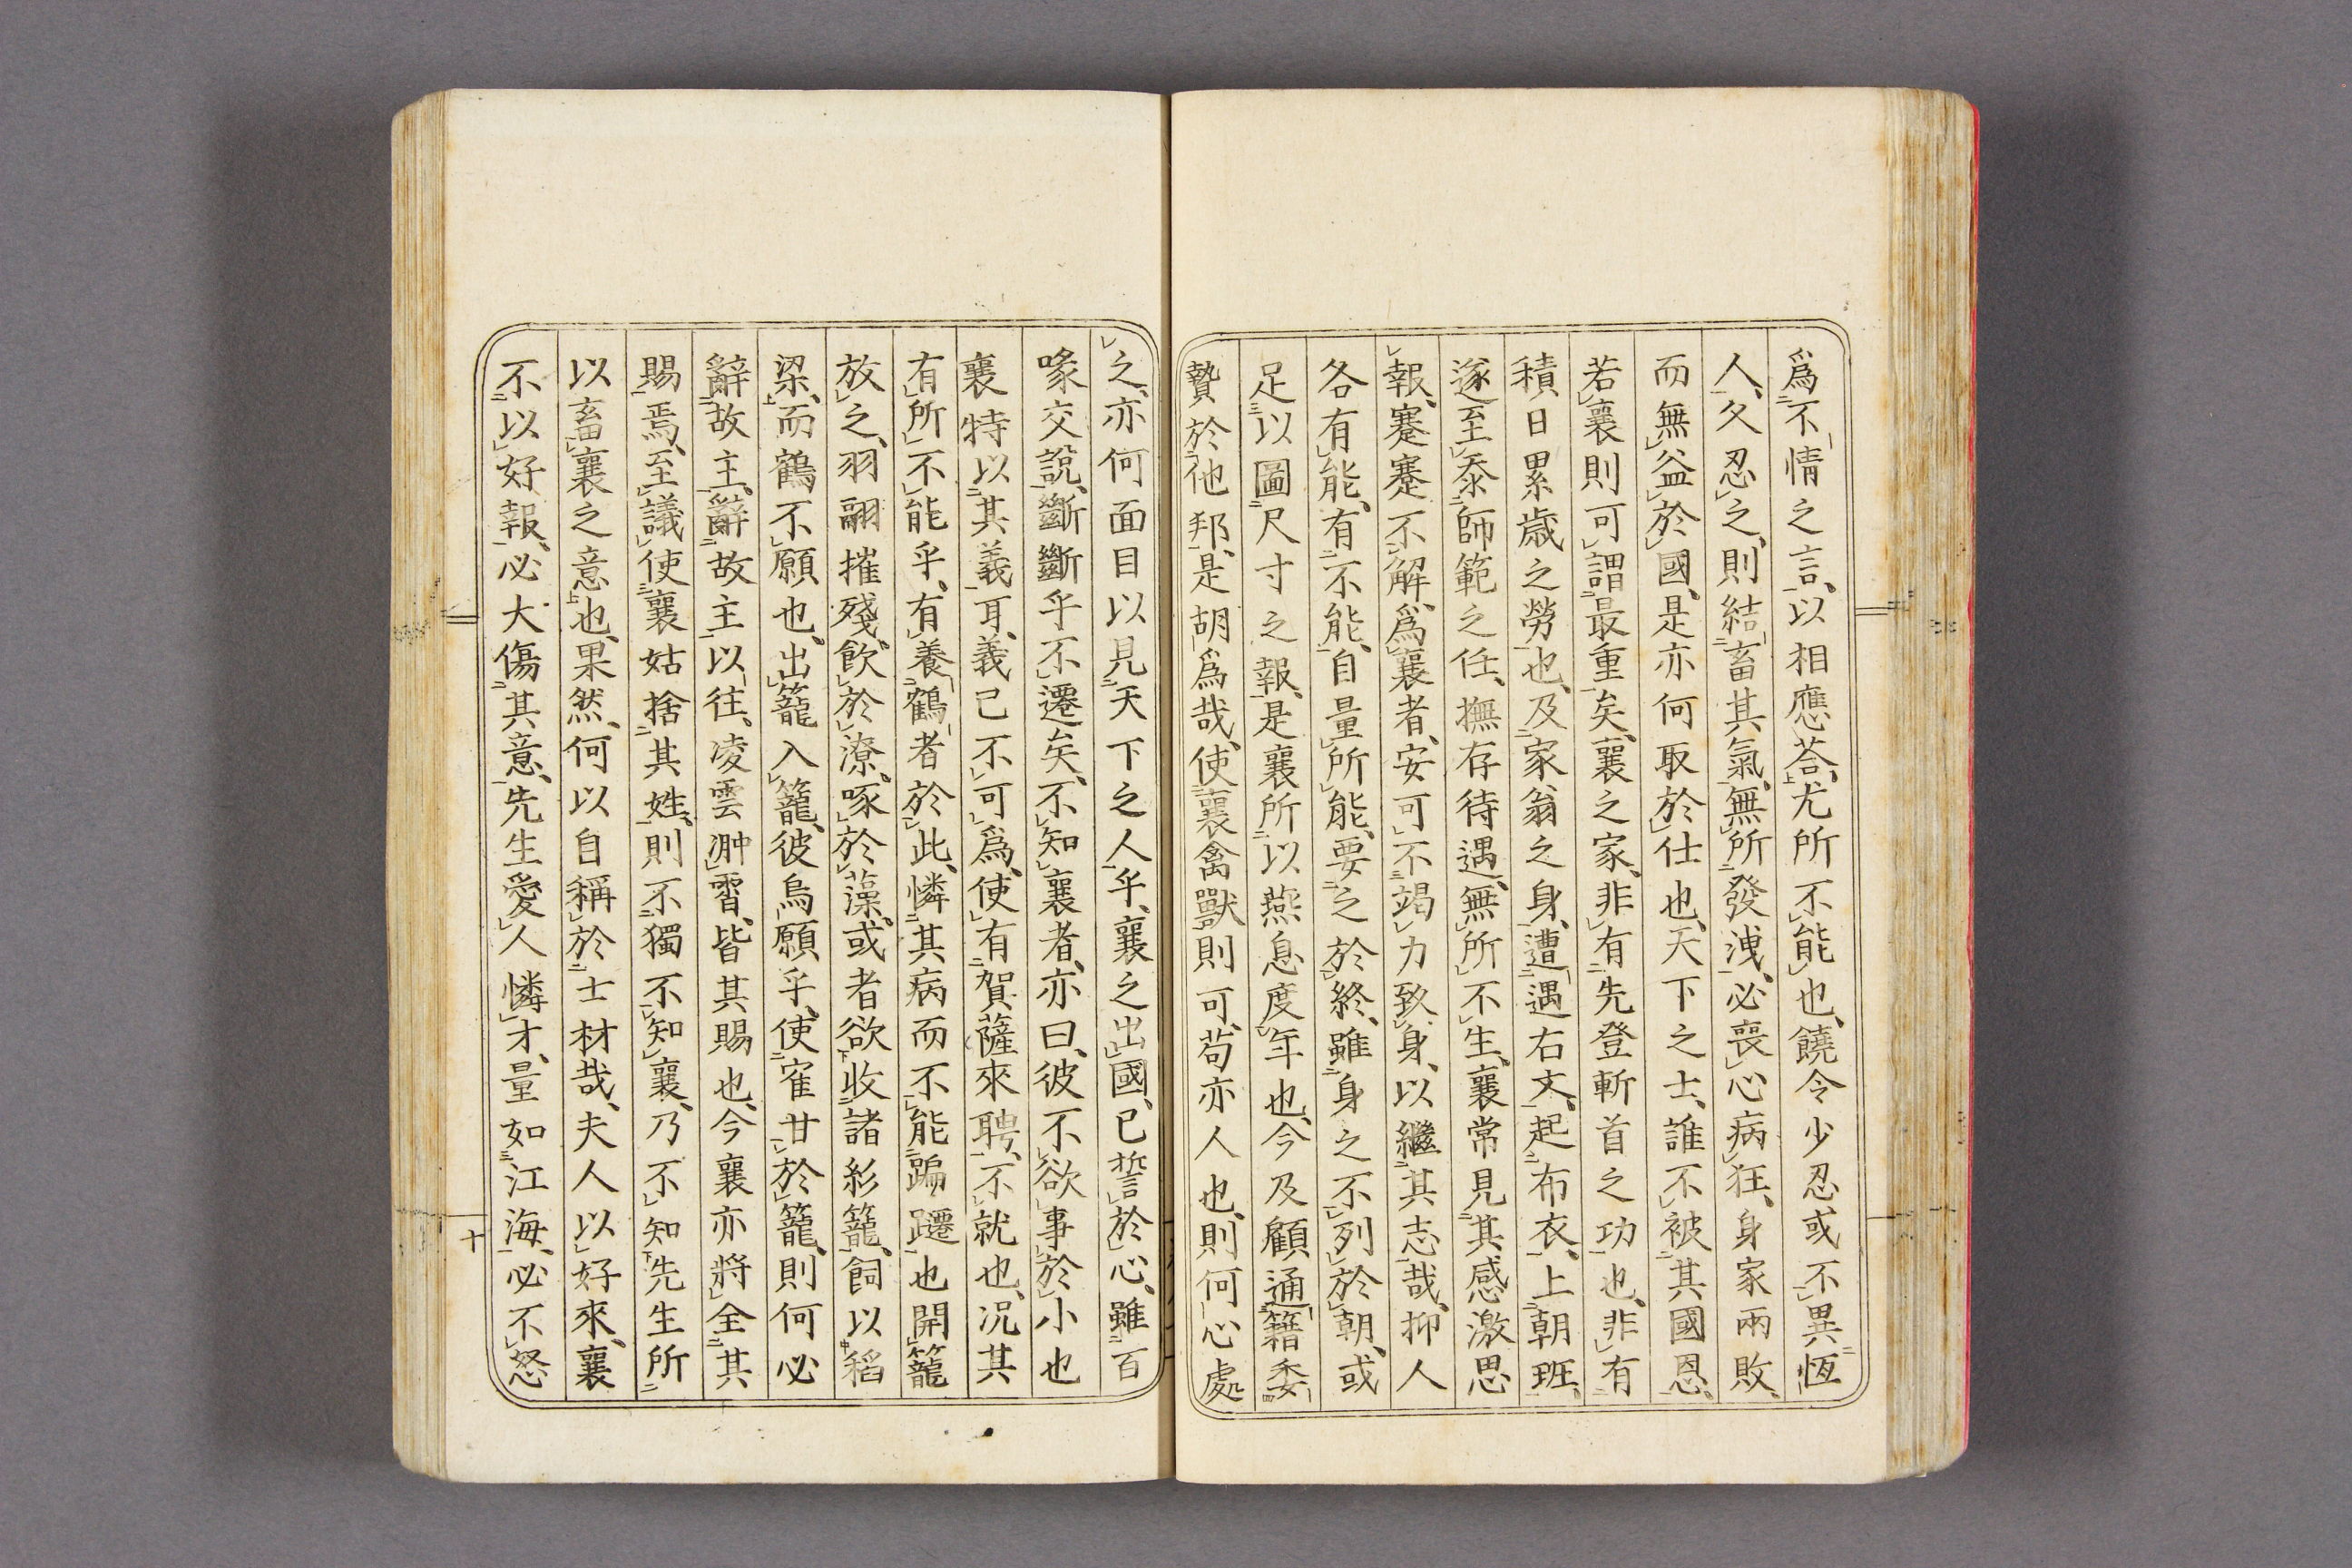 爲不情之言、以相應荅、尤所不能也、饒令少忍或不異恆
人、久忍之、則結畜其氣、無所發洩、必喪心病狂、身家兩敗、
而無益於國、是亦何取於仕也、天下之士、誰不被其國恩、
若襄則可謂最重矣、襄之家、非有先登斬首之功也、非有
積日累歳之勞也、及家翁之身、遭遇右文、起布衣、上朝班、
遂至忝師範之任、撫存待遇、無所不生、襄常見其感激思
報、蹇蹇不解、爲襄者、安可不竭力致身、以繼其志哉、抑人
各有能、有不能、自量所能、要之於終、雖身之不列於朝、或
足以圖尺寸之報、是襄所以燕息度年也、今及顧通籍委
贄於他邦、是胡爲哉、使襄禽獸則可、苟亦人也、則何心處
之、亦何面目以見天下之人乎、襄之出國、已誓於心、雖百
喙交說、斷斷乎不遷矣、不知襄者、亦曰、彼不欲事於小也
襄特以其義耳、義已不可爲、使有賀薩來聘、不就也、況其
有所不能乎、有養鶴者於此、憐其病而不能蹁躚也開籠
放之、羽翮摧殘、飲於潦、啄於藻、或者欲收諸彩籠、飼以稻
梁、而鶴不願也、出籠入籠、彼烏願乎、使寉甘於籠、則何必
辭故主、辭故主以往、凌雲翀霄、皆其賜也、今襄亦將全其
賜焉、至議使襄姑捨其姓、則不獨不知襄、乃不知先生所
以畜襄之意也、果然、何以自稱於士材哉、夫人以好來、襄
不以好報、必大傷其意、先生愛人憐才、量如江海、必不怒
十